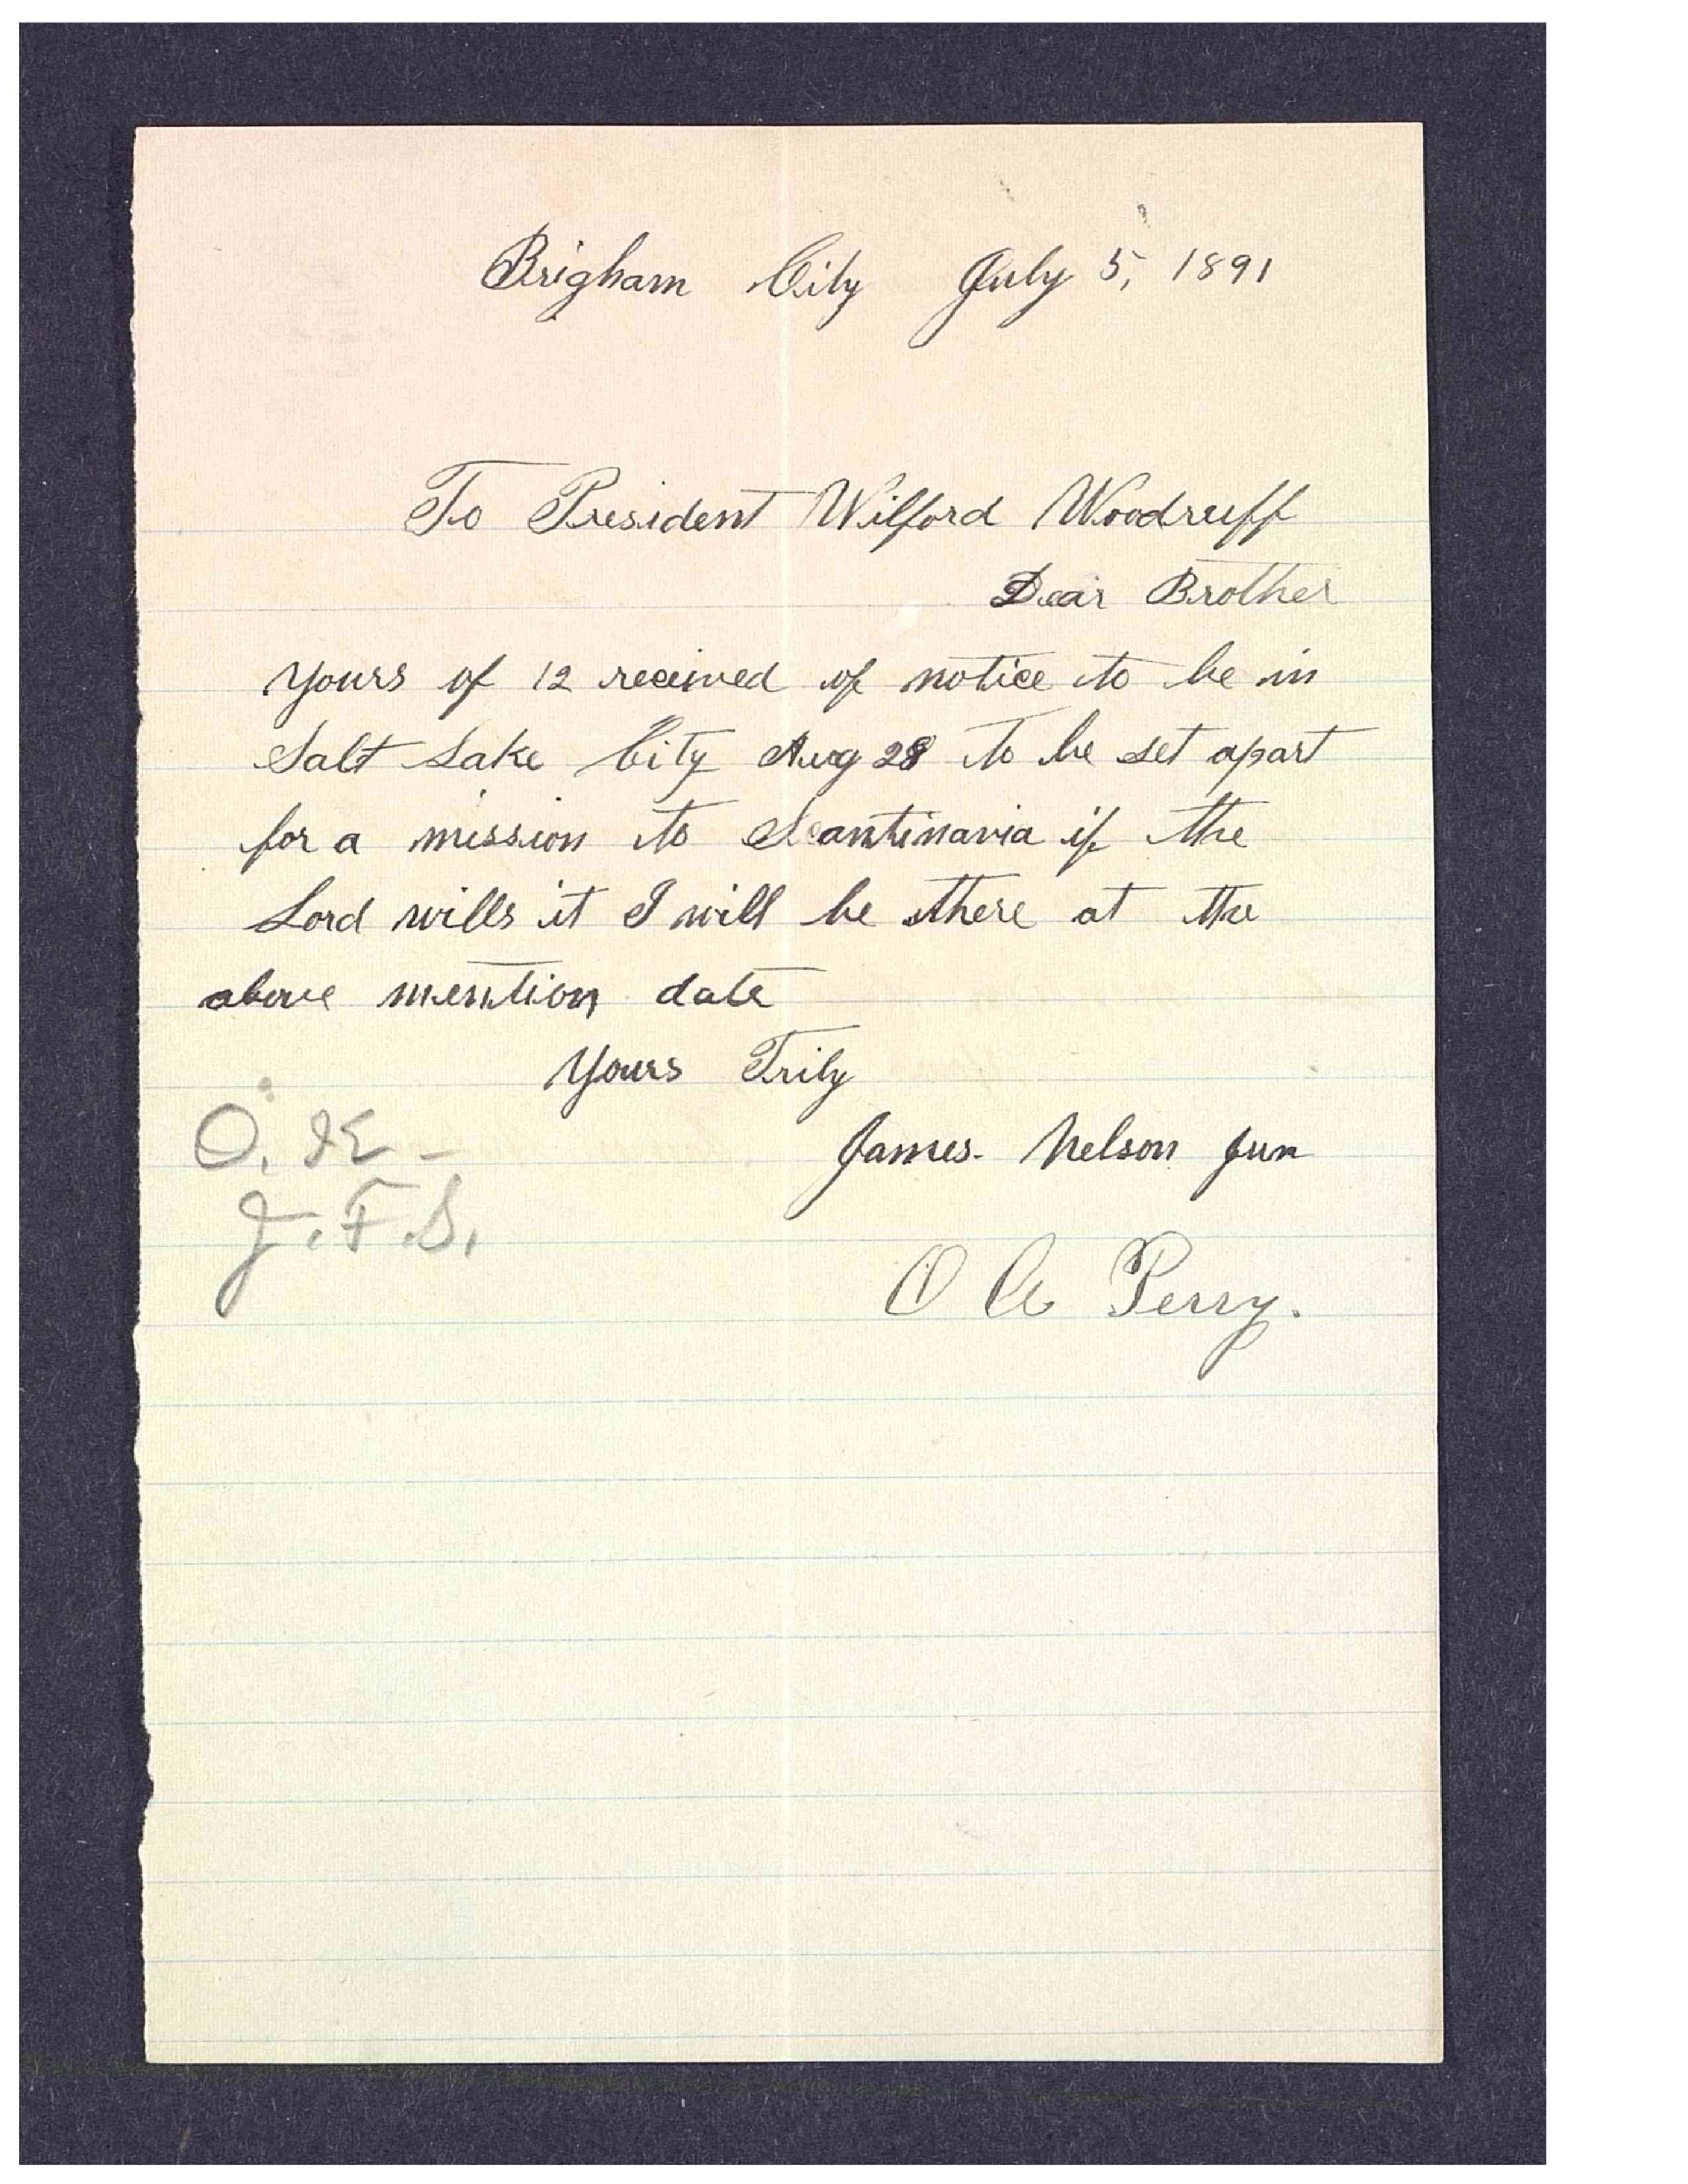 Brigham City July 5, 1891
To President Wilford Woodruff
Dear Brother
Yours of 12 received of notice to be in
Salt Lake City Aug 28 to be set apart
for a mission to Scantinavia if the
Lord wills it I will be there at the
above mention date
Yours Trily
James. Nelson Jun
O. K -
J. F. S.
O A Perry.